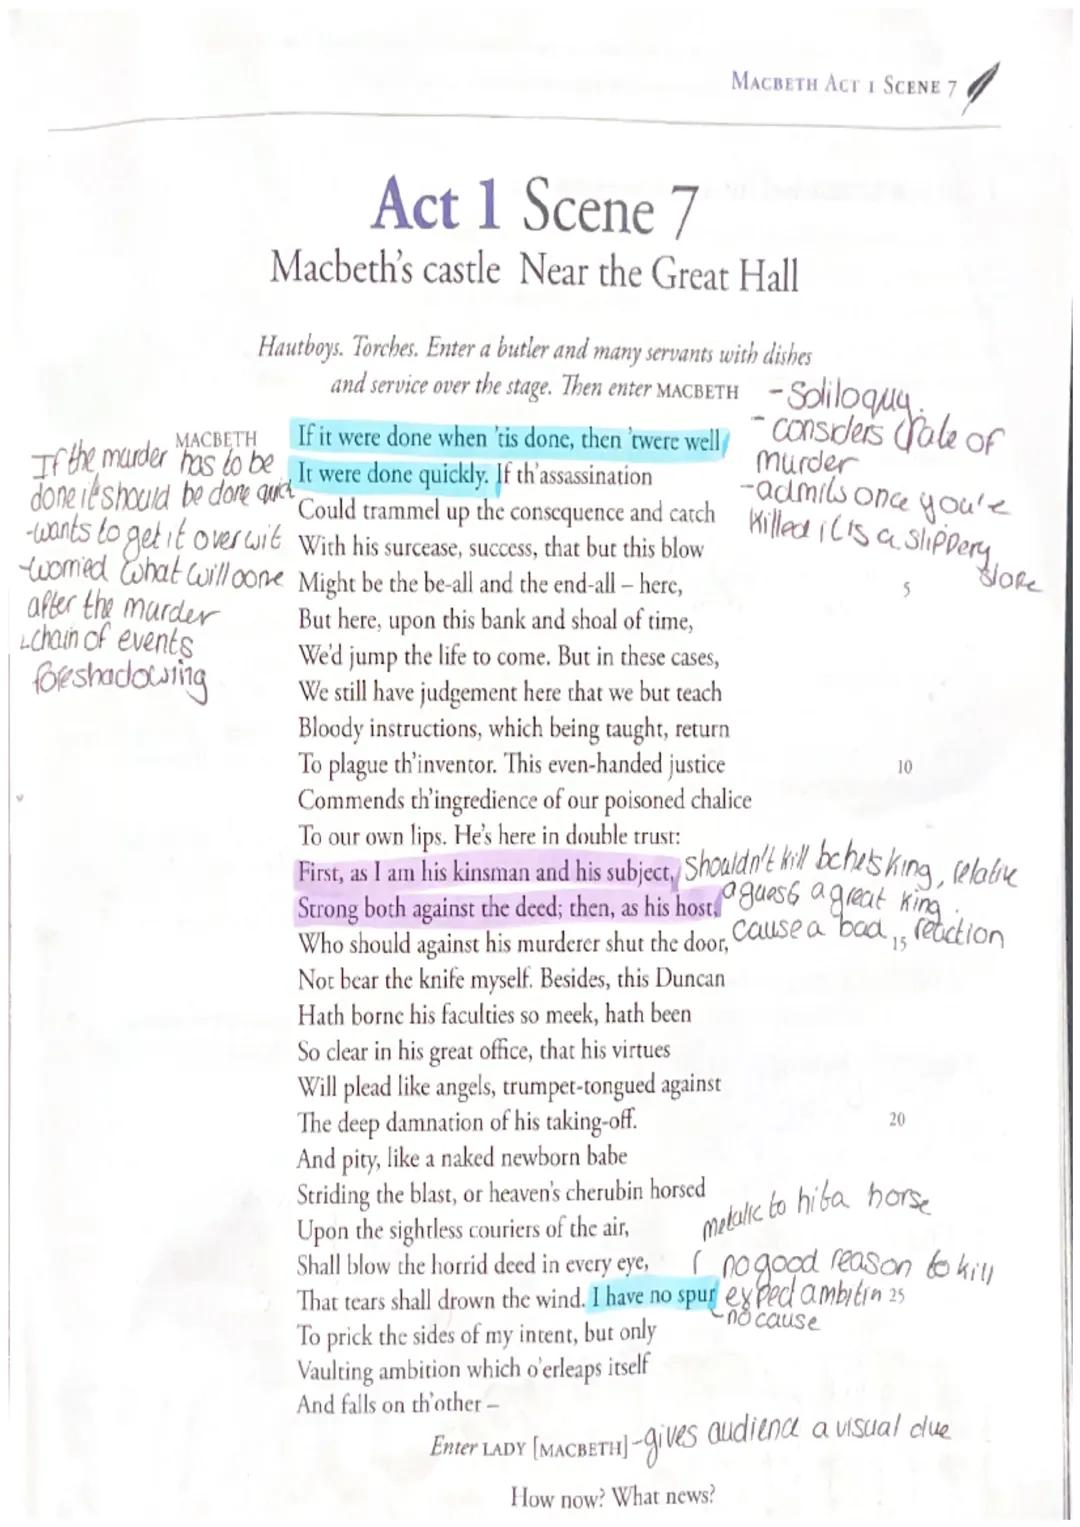 MACBETH ACT 1 SCENE 7
Act 1 Scene 7
Macbeth's castle Near the Great Hall
Hautboys. Torches. Enter a butler and many servants with dishes
and service over the stage. Then enter MACBETH
- Soliloquy.
- considers fate of
murder
-admits once you've
killed it is a slippery
slope
If the murder has to be
done it should be done quick
-wants to get it over wit
-worried what will
after the murder
chain of events
foreshadowing
MACBETH
If it were done when 'tis done, then 'twere well
It were done quickly. If th'assassination
Could trammel up the consequence and catch
With his surcease, success, that but this blow
Might be the be-all and the end-all – here,
5
But here, upon this bank and shoal of time,
We'd jump the life to come. But in these cases,
We still have judgement here that we but teach
Bloody instructions, which being taught, return
To plague th'inventor. This even-handed justice
10
Commends th'ingredience of our poisoned chalice
To our own lips. He's here in double trust:
First, as I am his kinsman and his subject,
Strong both against the deed; then, as his host,
Who should against his murderer shut the door,
15
shouldn't kill king, relative
a guest a great king.
cause a bad reaction
Not bear the knife myself. Besides, this Duncan
Hath borne his faculties so meek, hath been
So clear in his great office, that his virtues
Will plead like angels, trumpet-tongued against
The deep damnation of his taking-off.
20
And pity, like a naked newborn babe
Striding the blast, or heaven's cherubin horsed
Upon the sightless couriers of the air,
Shall blow the horrid deed in every eye,
That tears shall drown the wind. I have no spur
25
to hit a horse
no good reason to kill
no cause
To prick the sides of my intent, but only
Vaulting ambition which o'erleaps itself
And falls on th'other –
Enter LADY [MACBETH]
-gives audience a visual clue
How now? What news?